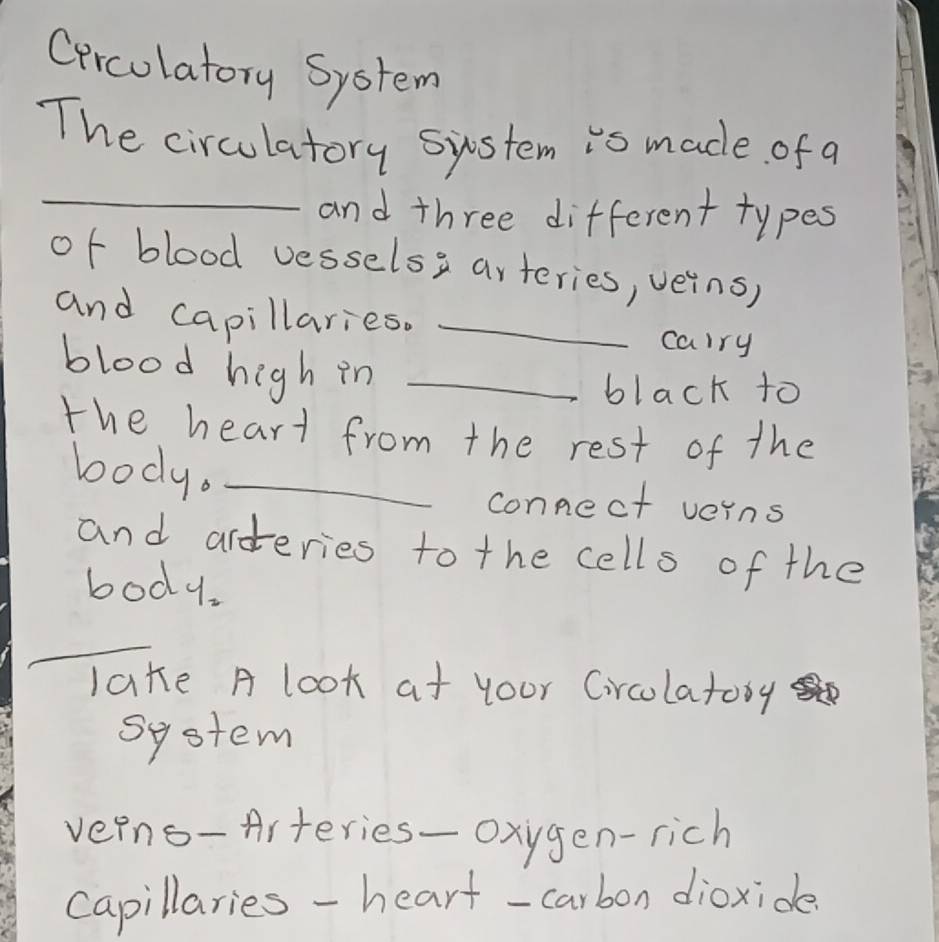 Circulatory System
The circulatory system is made of a
__________ and three different types
of blood vessels; arteries, veins,
and capillaries. __________ carry
blood high in __________ black to
the heart from the rest of the
body. __________ connect veins
and arteries to the cells of the
body.
Take A look at your Circulatory
System
veins - Arteries - oxygen-rich
capillaries - heart - carbon dioxide.